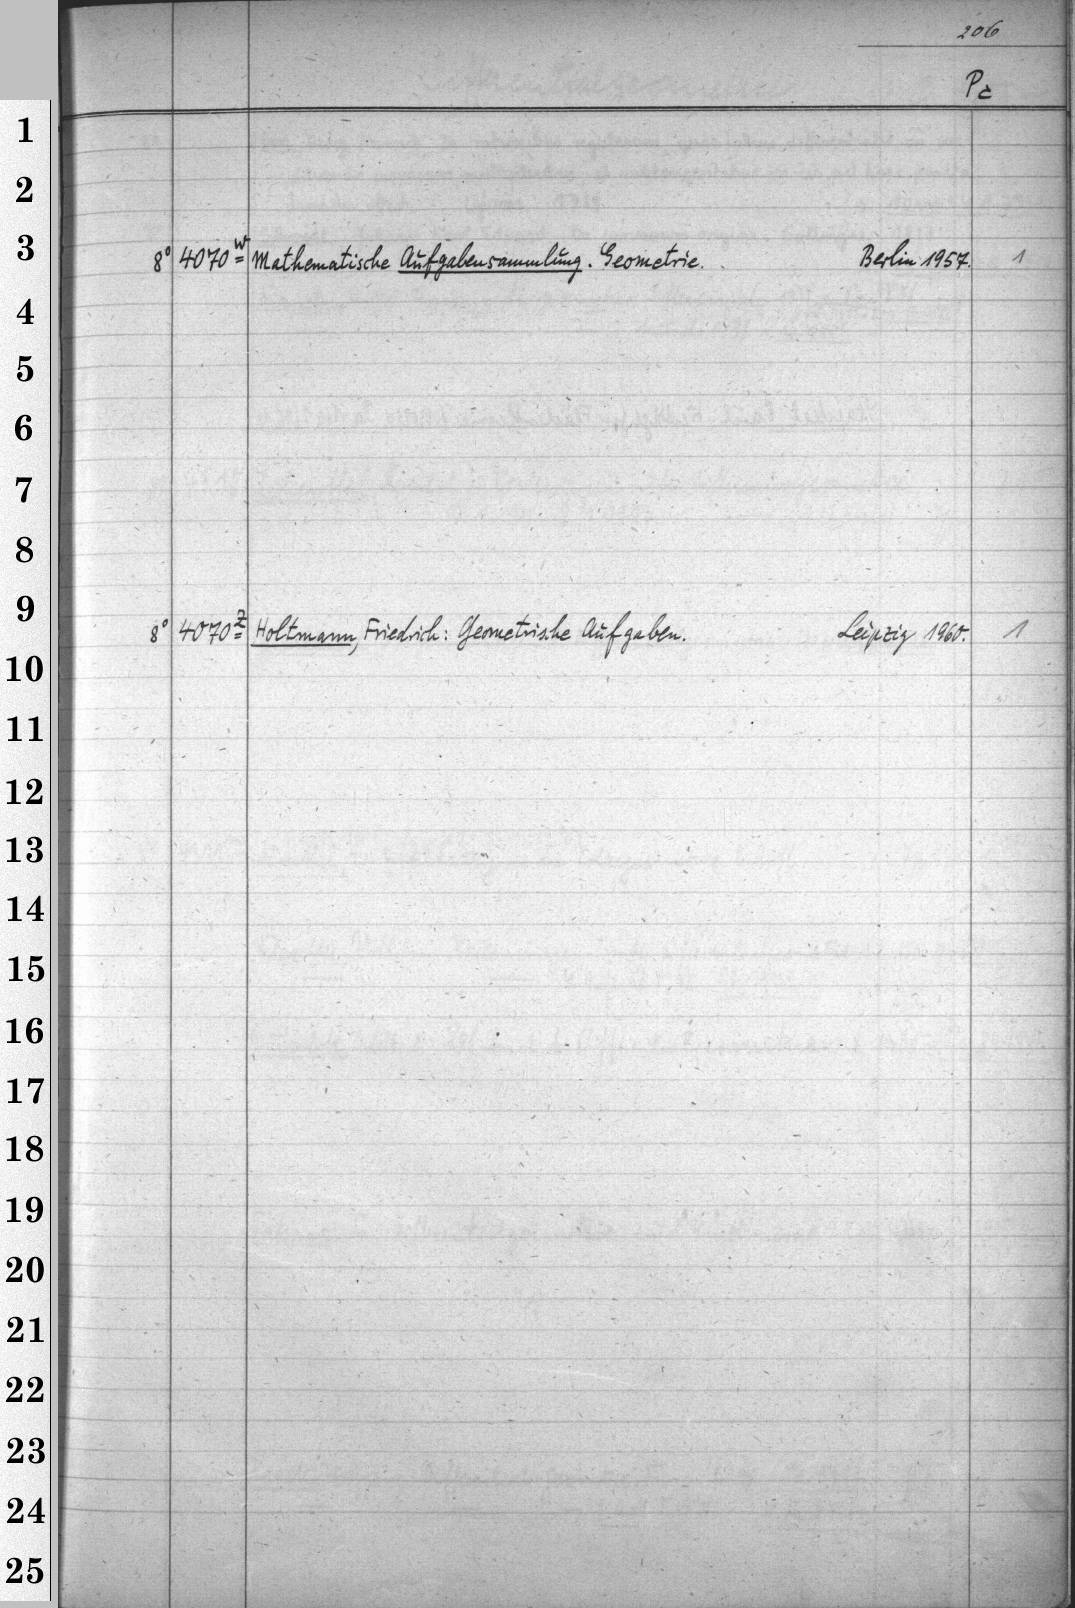 206
Pc
1
2
3
8° 4070 w Mathematische Aufgabensammlung. Geometrie. Berlin 1957. 1
4
5
6
7
8
9
8° 4070 z Holtmann, Friedrich: Geometrische Aufgaben. Leipzig 1960. 1
10
11
12
13
14
15
16
17
18
19
20
21
22
23
24
25